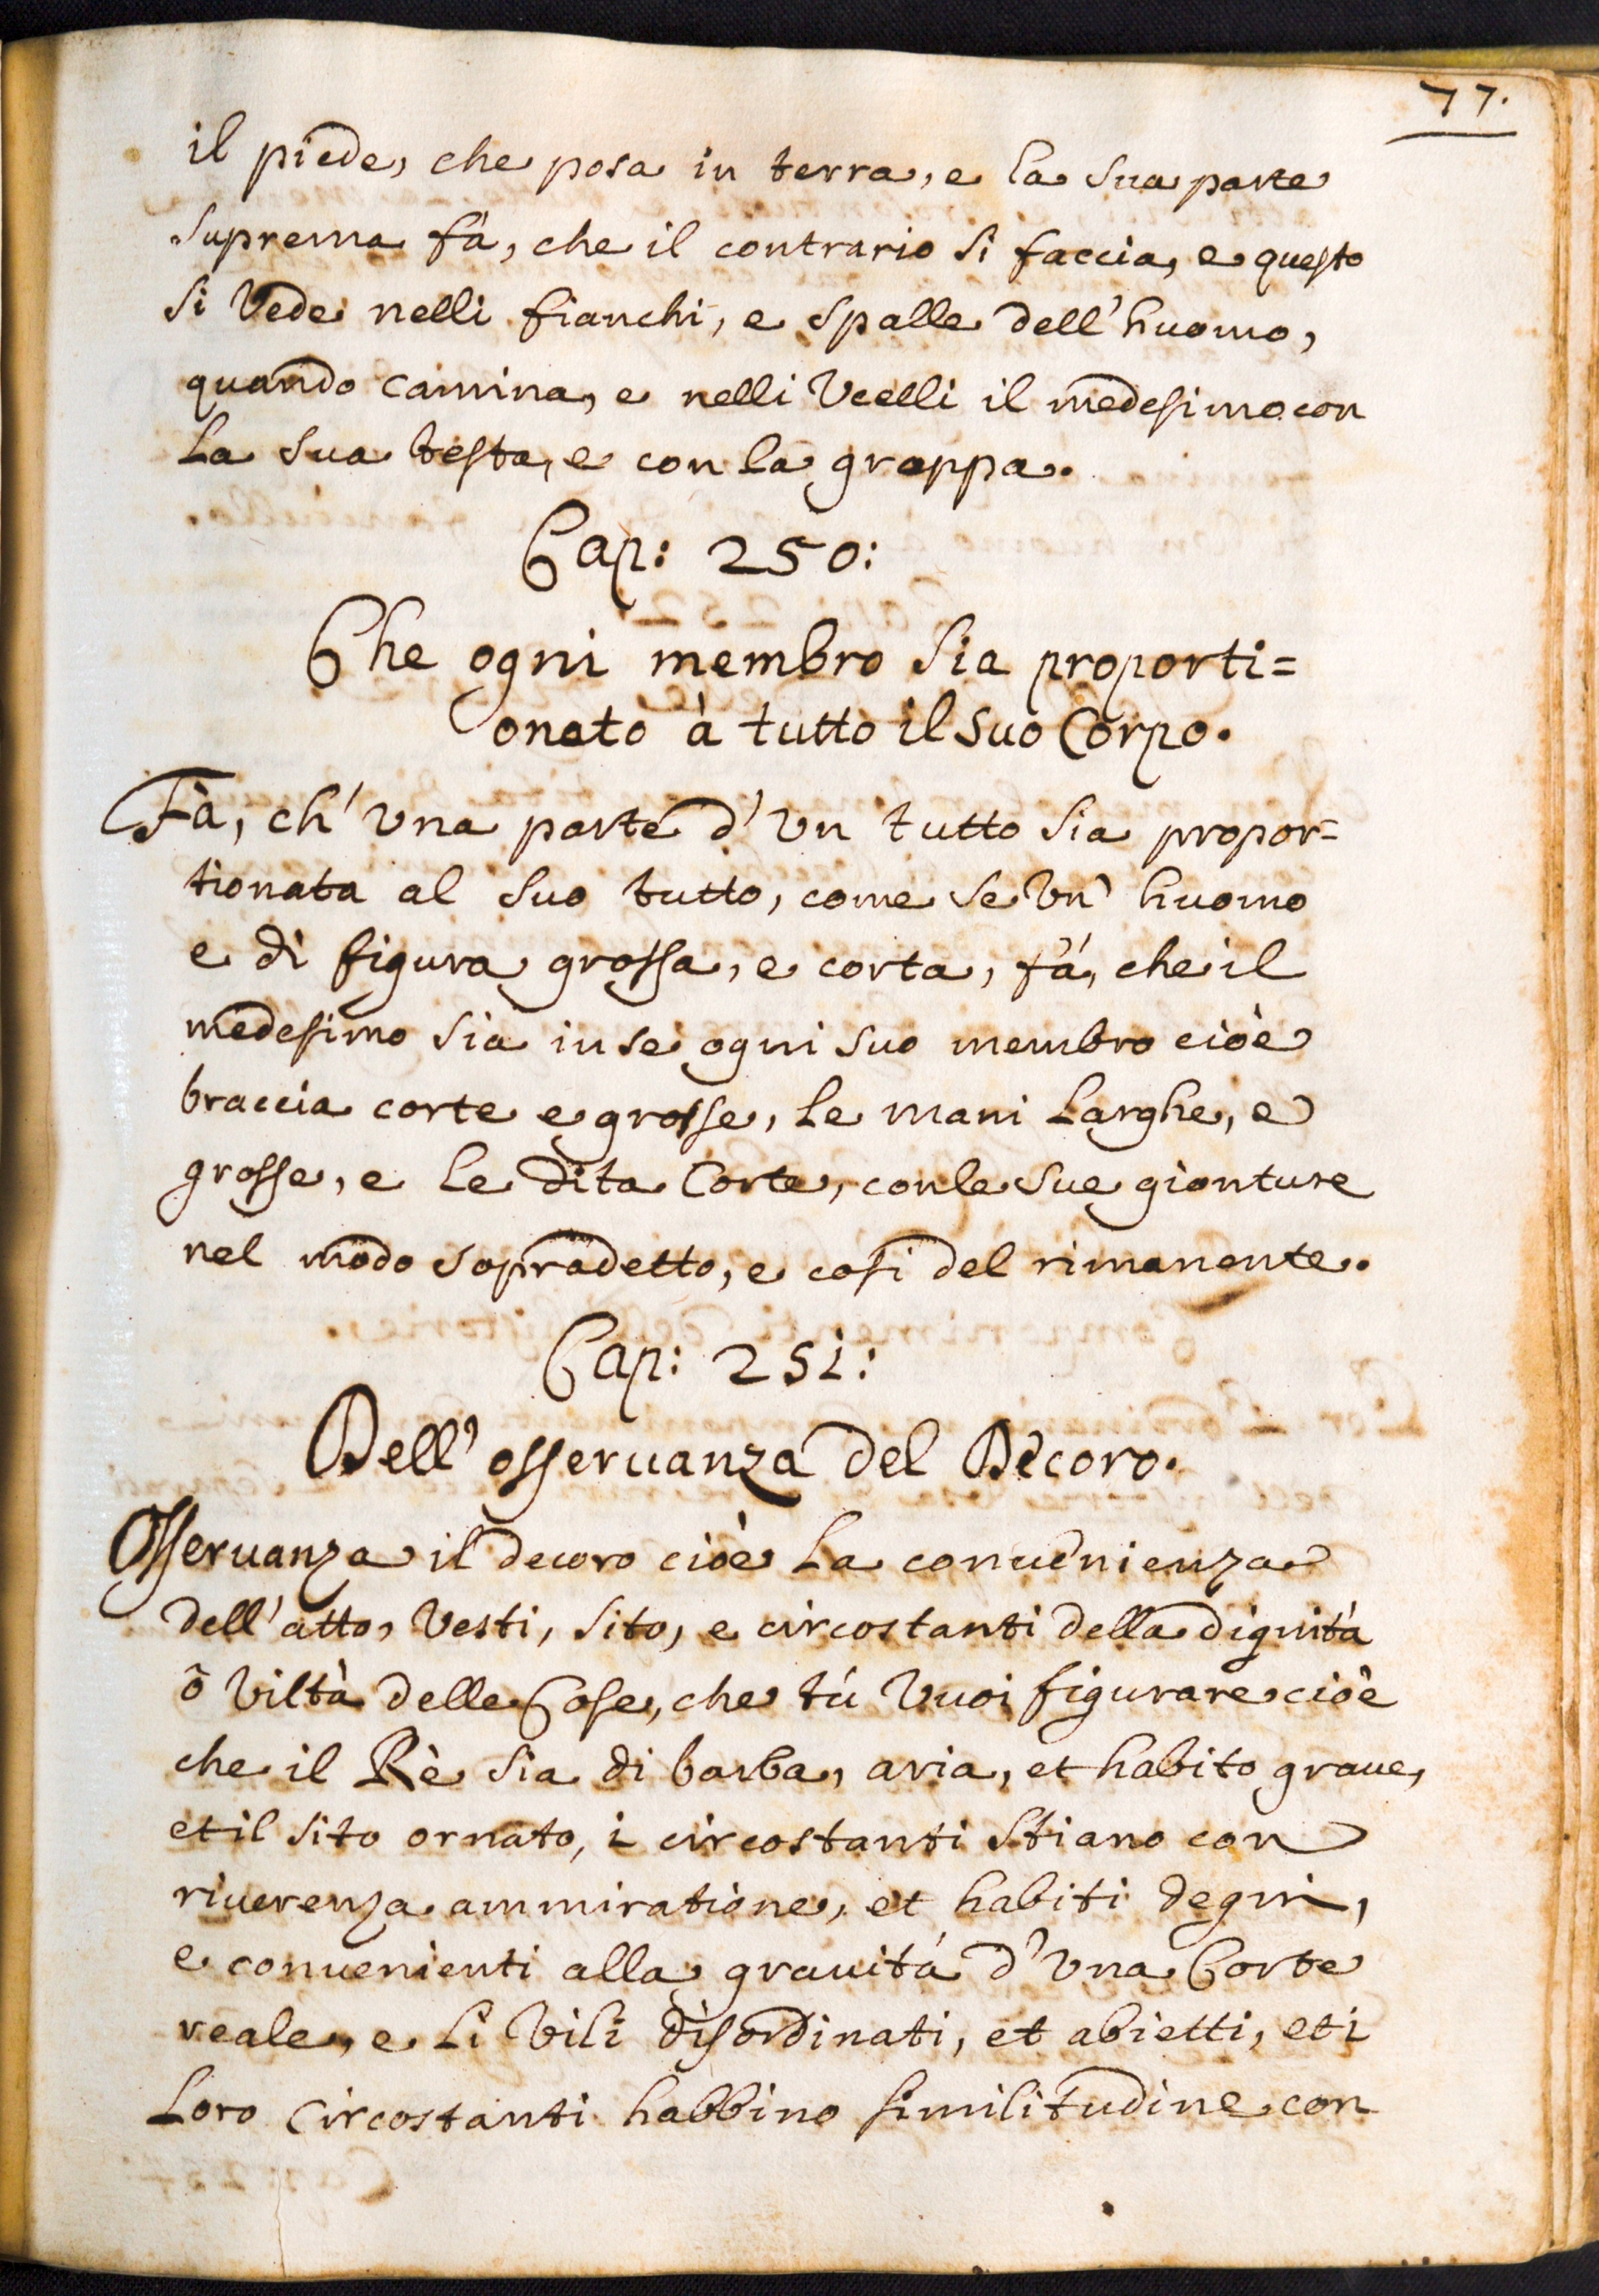 77.
il piede, che posa in terra, e la sua parte
suprema fà, che il contrario si faccia, e questo
si Vede nelli fianchi, e spalle dell'huomo,
quando camina, e nelli Vcelli il medesimo con
la sua testa, e con la groppa.
Cap: 250:
Che ogni membro sia proporti=
onato à tutto il suo Corpo.
Fà, ch'vna parte d'vn tutto sia propor=
tionata al suo tutto, come se vn' huomo
e di figura grossa, e corta, fá, che il
medesimo sia in se ogni suo membro cioè
braccia corte e grosse, le mani larghe, e
grosse, e le dita Corte, con le sue gionture
nel modo sopradetto, e cosi del rimanente.
Cap: 251:
Dell'osseruanza del Decoro.
Osseruanza il decoro cioè la conuenienza
dell'atto, Vesti, sito, e circostanti della dignità
ò Viltà delle Cose, che tú Vuoi figurare cioè
che il Rè sia di barba, aria, et habito graue,
et il sito ornato, i circostanti stiano con
riuerenza ammiratione, et habiti degni,
e conuenienti alla grauitá d'Vna Corte
reale, e li Vili disordinati, et abietti, et i
loro circostanti habbino similitudine con